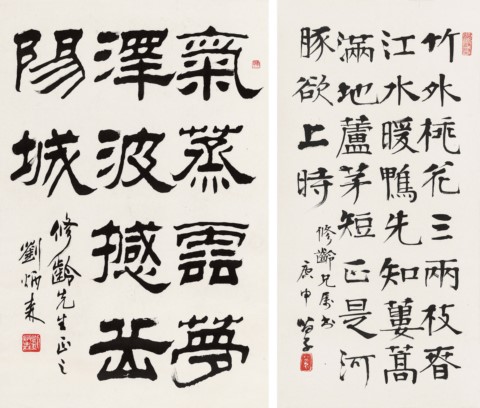 氣蒸雲夢
澤波撼岳
陽城
修齡先生正之
劉炳森
竹外桃花三兩枝春
江水暖鴨先知蔞蒿
滿地蘆芽短正是河
豚欲上時
修齡兄屬書
庚申 苗子